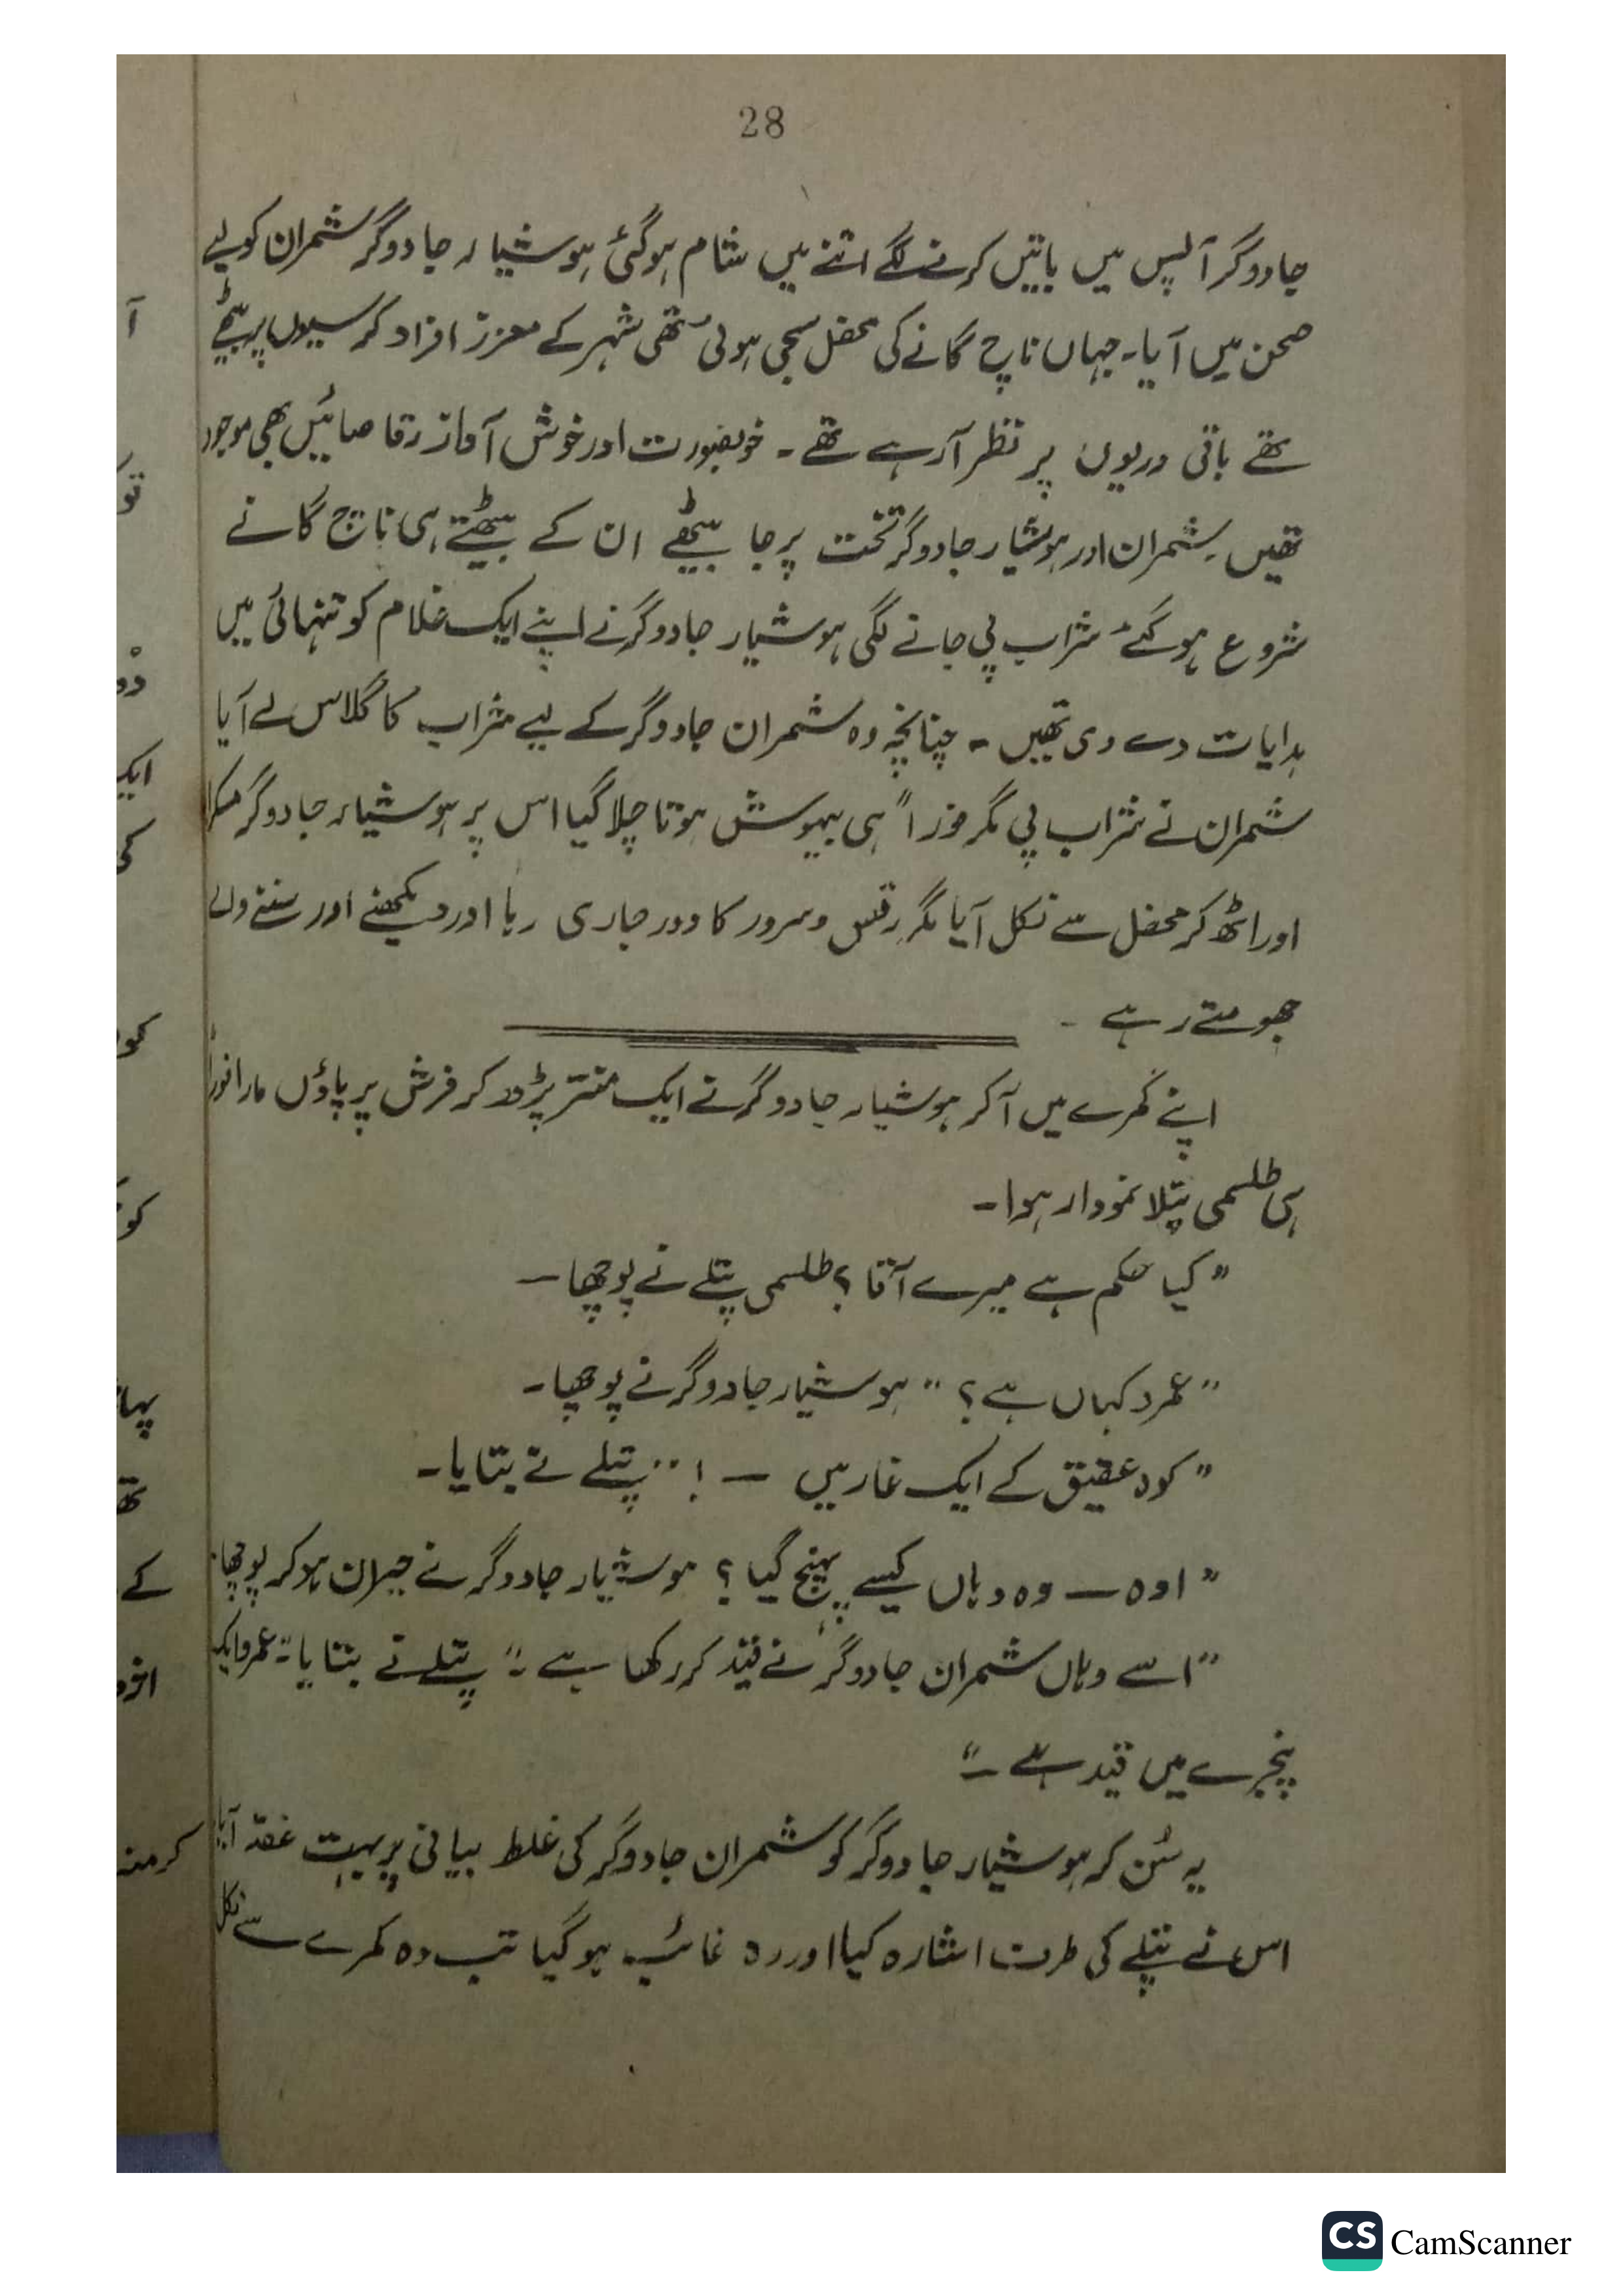 28
جادوگر آپس میں باتیں کرنے لگے اتنے میں شام ہوگئی ہوشیار جادوگر شمران کو لیے
صحن میں آیا۔ جہاں ناچ گانے کی محفل سجی ہوئی تھی شہر کے معزز افراد کرسیوں پر بیٹھے
تھے باقی دریوں پر نظر آرہے تھے۔ خوبصورت اور خوش آواز رقاصائیں بھی موجود
تھیں۔ شمران اور ہوشیار جادوگر تخت پر جا بیٹھے ان کے بیٹھتے ہی ناچ گانے
شروع ہوگئے شراب پی جانے لگی ہوشیار جادوگر نے اپنے ایک غلام کو تنہائی میں
ہدایات دے دی تھیں۔ چنانچہ وہ شمران جادوگر کے لیے شراب کا گلاس لے آیا
شمران نے شراب پی مگر فوراً ہی بیہوش ہوتا چلا گیا اس پر ہوشیار جادوگر مسکرا
اور اٹھ کر محفل سے نکل آیا مگر رقص و سرور کا دور جاری رہا اور دیکھنے اور سننے والے
جھومتے رہے۔
اپنے کمرے میں آکر ہوشیار جادوگر نے ایک منتر پڑھ کر فرش پر پاؤں مارا فوراً
ہی طلسمی پتلا نمودار ہوا۔
"کیا حکم ہے میرے آقا؟ طلسمی پتلے نے پوچھا—
"عمرو کہاں ہے؟" ہوشیار جادوگر نے پوچھا۔
"کوہ عقیق کے ایک غار میں —!" پتلے نے بتایا۔
"اوہ — وہ وہاں کیسے پہنچ گیا؟ ہوشیار جادوگر نے حیران ہوکر پوچھا۔
"اسے وہاں شمران جادوگر نے قید کر رکھا ہے۔" پتلے نے بتایا۔ "عمرو ایک
پنجرے میں قید ہے۔"
یہ سُن کر ہوشیار جادوگر کو شمران جادوگر کی غلط بیانی پر بہت غصّہ آیا
اس نے پتلے کی طرف اشارہ کیا اور وہ غائب ہوگیا تب وہ کمرے سے نکل
آ
تو
ایک
کی
کو
پہا
تھ
کے
CS CamScanner